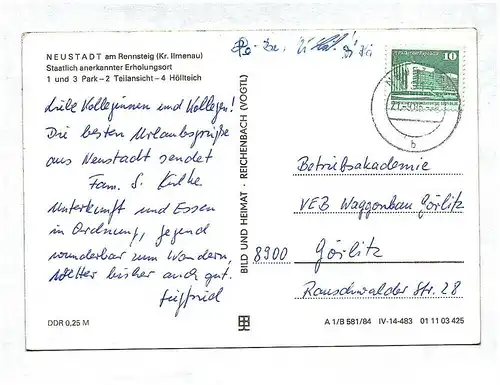 NEUSTADT am Rennsteig (Kr. Ilmenau)
Staatlich anerkannter Erholungsort
1 und 3 Park – 2 Teilansicht – 4 Höllteich
Liebe Kolleginnen und Kollegen!
Die besten Urlaubsgrüße
aus Neustadt sendet
Fam. S.
Unterkunft und Essen
in Ordnung, Gegend
wunderbar zum Wandern,
Wetter bisher auch gut.
Siegfried
DDR 0,25 M
BILD UND HEIMAT · REICHENBACH (VOGTL)
10
Betriebsakademie
VEB Waggonbau Görlitz
8900 Görlitz
Rauschwalder Str. 28
A 1/B 581/84 IV-14-483 01 11 03 425